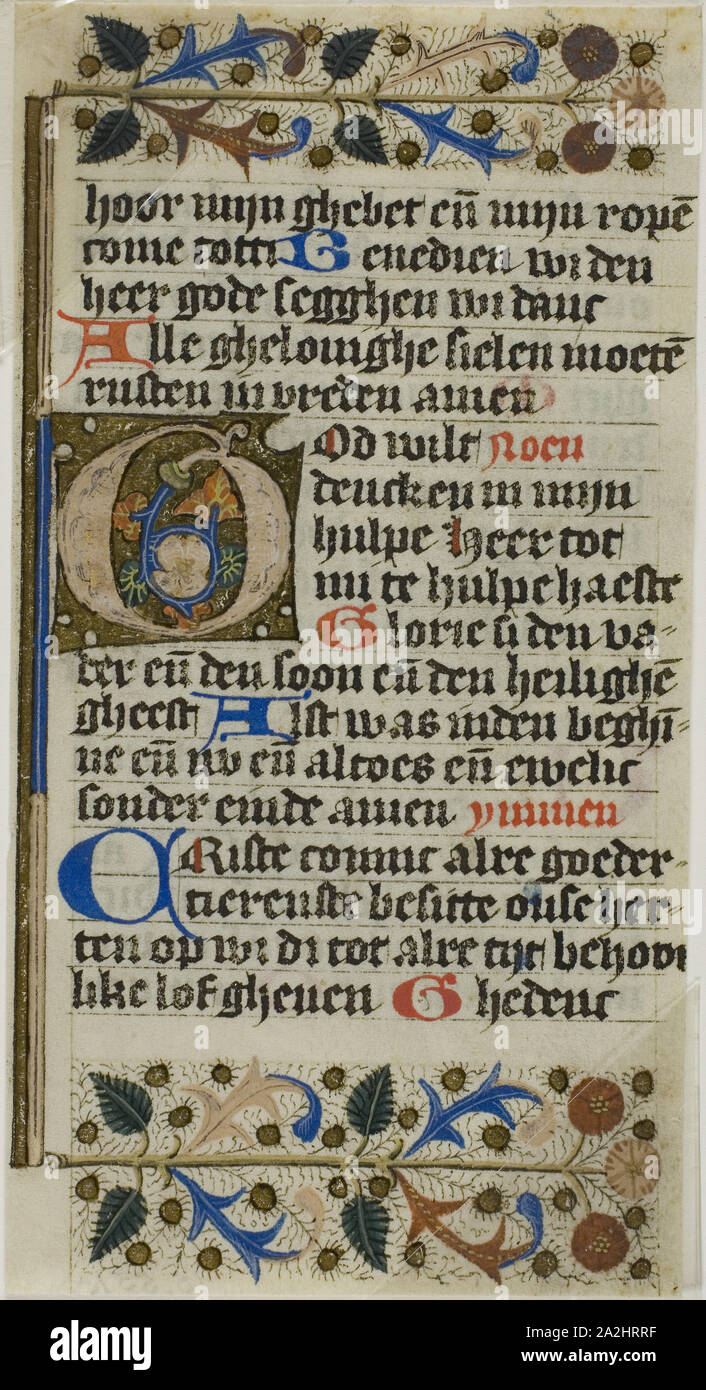 hoor mijn ghebet en̄ mijn ropē
come totti Ghenedien wi den
heer gode segghen wi danc
Alle ghelouighe sielen moetē
rusten in vreden amen
God wilt Noen
dencken in mijn
hulpe Heer tot
mi te hulpe haeste
Glorie si den va-
der en̄ den soon en̄ den heilighē
gheest Alst was inden beghī-
ne en̄ nv en̄ altoes en̄ ewelic
sonder einde amen ymmen
CRiste comme alre goeder-
tierenste besitte onse her-
ten op wi di tot alre tijt behoor
like lof gheuen Ghedenc
alamy
Image ID: 2A2HRRF
www.alamy.com